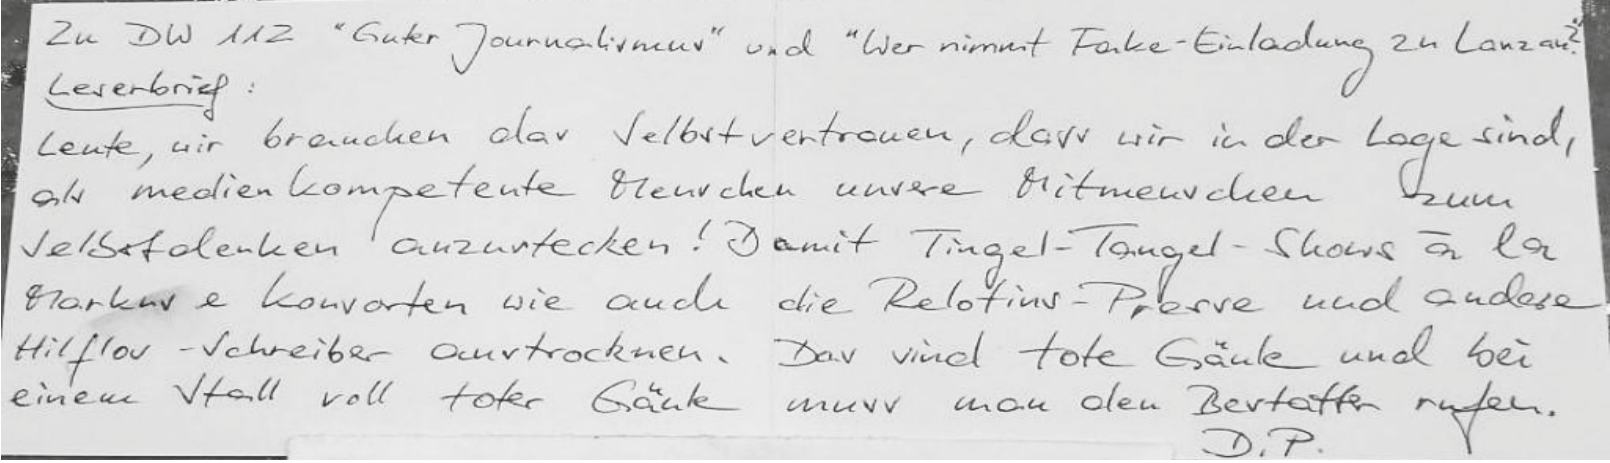 Zu DW 112 "Guter Journalismus" und "Wer nimmt Fake-Einladung zu Lanz an?"
Leserbrief:
Leute, wir brauchen das Selbstvertrauen, dass wir in der Lage sind,
als medienkompetente Menschen unsere Mitmenschen zum
Selbstdenken anzustecken! Damit Tingel-Tangel-Shows à la
Markus e konsorten wie auch die Relotius-Presse und andere
Hilflos-Schreiber austrocknen. Das sind tote Gäule und bei
einem Stall voll toter Gäule muss man den Bestatter rufen.
D.P.